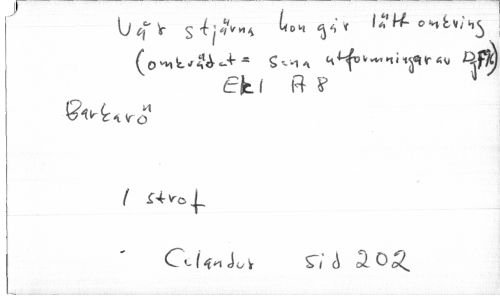 Vår stjärna hon går lätt omkring
(omkvädet = sena utformningar av
Ek 1 A 8
Barkarö
1 strof
Celander sid 202